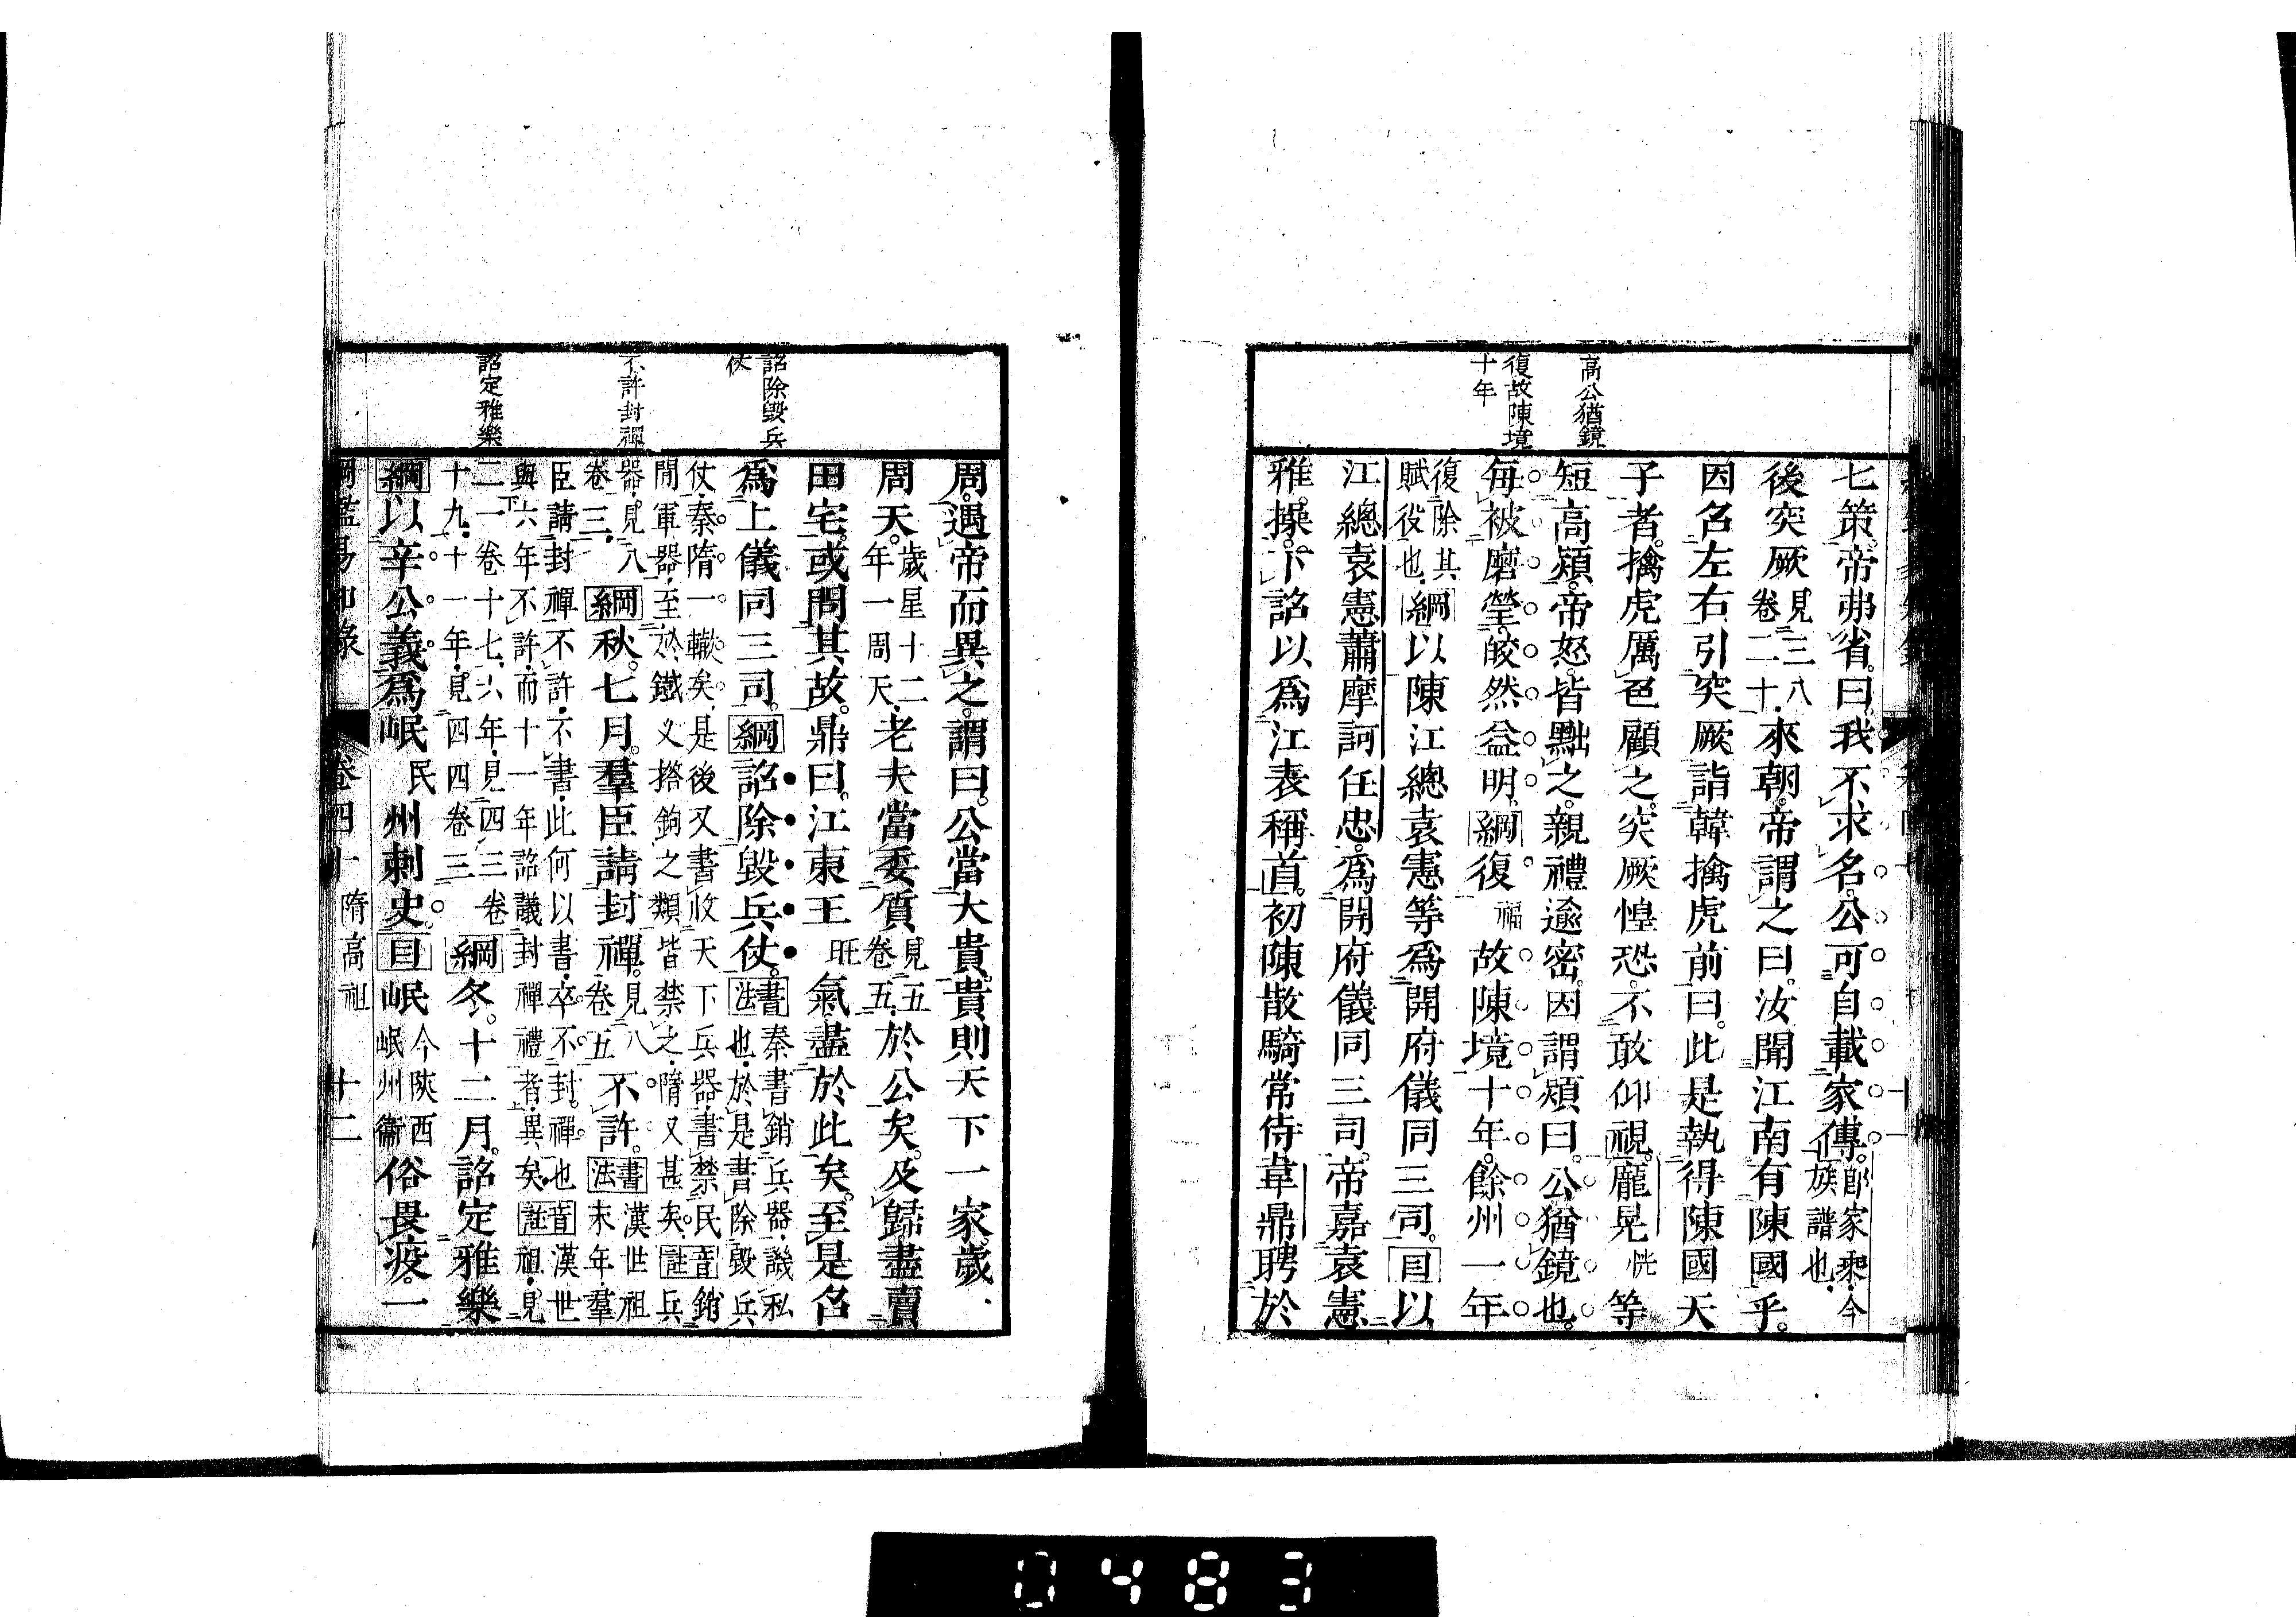 高公猶鏡
復故陳境
十年
七策。帝弗省。曰。我不求名。公可自載家傳。卽家乘。今族譜也。
後突厥見三八卷二十。來朝。帝謂之曰。汝聞江南有陳國天子乎。
因名左右引突厥詣韓擒虎前曰。此是執得陳國天
子者。擒虎厲色顧之。突厥惶恐。不敢仰視。龐晃恍等
短高熲。帝怒。皆黜之。親禮逾密。因謂熲曰。公猶鏡也。
每被磨瑩。皎然益明。綱復福故陳境十年。餘州一年
復除其賦役也。綱以陳江總袁憲等爲開府儀同三司。目以
江總袁憲蕭摩訶任忠。爲開府儀同三司。帝嘉袁憲
雅操。下詔以爲江表稱首。初陳散騎常侍韋鼎聘於
詔除毀兵
仗
不許封禪
詔定雅樂
周。遇帝而異之。謂曰。公當大貴。貴則天下一家。歲一
周天。歲星十二年一周天。老夫當委質見五卷五。於公矣。及歸盡賣
田宅。或問其故。鼎曰。江東王旺氣。盡於此矣。至是召
爲上儀同三司。綱詔除毀兵仗。書法秦書銷兵器。譏私也。於是書除毀兵
仗。秦隋一轍矣。是後又書收天下兵器。書禁民
間軍器。至於鐵叉搭鉤之類。皆禁之。隋又甚矣。音註銷兵
器。見八卷三。綱秋。七月。羣臣請封禪。見八卷五不許。書法漢世祖末年。羣
臣請封禪不許。不書。此何以書。卒不封禪也
與六年不許。而十一年詔議封禪禮者。異矣。音註漢世祖。見
二一卷十七。六年。見四三卷
十九。十一年。見四四卷三綱冬。十二月。詔定雅樂
綱以辛公義爲岷民州刺史。目岷今陝西岷州衞俗畏疫。一
綱鑑易知錄 卷四十 隋高祖 十二
0483